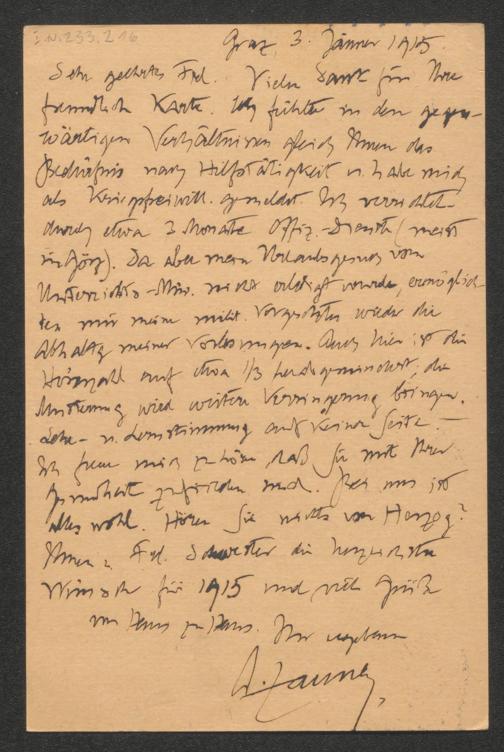 I.N. 233.216
Graz, 3. Jänner 1915.
Sehr geehrtes Frl. Vielen Dank für Ihre
freundliche Karte. Ich fühlte in den gegen-
wärtigen Verhältnissen gleich Ihnen das
Bedürfnis nach Hilfstätigkeit u. habe mich
als Kriegsfreiwill. gemeldet. Ich verrichtete
durch etwa 3 Monate Offiz.-Dienste (meist
in Görz). Da aber mein Urlaubsgesuch vom
Unterrichts-Min. nicht erledigt wurde, ermöglich-
ten mir meine milit. Vorgesetzten wieder die
Abhaltg meiner Vorlesungen. Auch hier ist die
Hörerzahl auf etwa 1/3 herabgemindert, die
Musterung wird weitere Verringerung bringen.
Lehr- u. Lernstimmung auf keiner Seite. —
Ich freue mich zu hören daß Sie mit Ihrer
Gesundheit zufrieden sind. Bei uns ist
alles wohl. Hören Sie nichts von Herzog?
Ihnen u. Frl. Schwester die herzlichsten
Wünsche für 1915 und viele Grüße
von Haus zu Haus. Ihr ergebener
A. Zauner